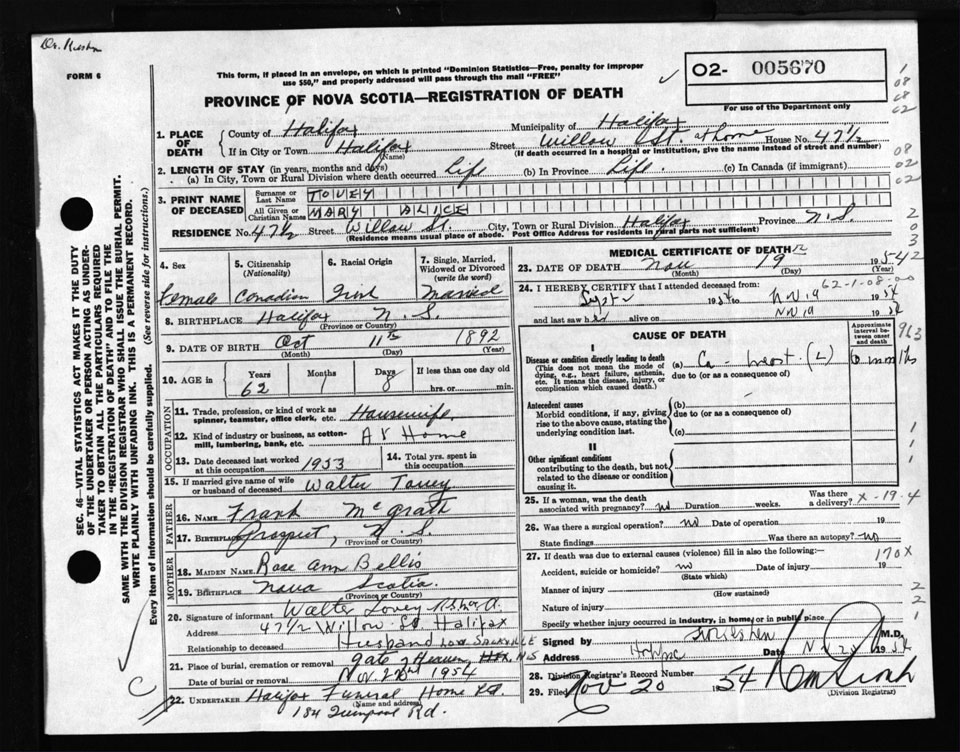 Dr. Kirsten
FORM 6
This form, if placed in an envelope, on which is printed "Dominion Statistics—Free, penalty for improper
use $50," and properly addressed will pass through the mail "FREE"
PROVINCE OF NOVA SCOTIA—REGISTRATION OF DEATH
02- 005670
For use of the Department only
1. PLACE OF DEATH
County of Halifax Municipality of Halifax
If in City or Town Halifax (Name) Street Willow St. at home House No. 47½
(If death occurred in a hospital or institution, give the name instead of street and number)
2. LENGTH OF STAY (in years, months and days)
(a) In City, Town or Rural Division where death occurred Life (b) In Province Life. (c) In Canada (if immigrant)
3. PRINT NAME OF DECEASED
Surname or Last Name TOVEY
All Given or Christian Names MARY ALICE
RESIDENCE No. 47½ Street Willow St. City, Town or Rural Division Halifax Province N.S.
(Residence means usual place of abode. Post Office Address for residents in rural parts not sufficient)
4. Sex
Female
5. Citizenship (Nationality)
Canadian
6. Racial Origin
Irish
7. Single, Married, Widowed or Divorced (write the word)
Married
8. BIRTHPLACE Halifax N.S.
(Province or Country)
9. DATE OF BIRTH Oct 11th 1892
(Month) (Day) (Year)
10. AGE in Years 62 Months 1 Days 8 If less than one day
hrs. or min.
OCCUPATION
11. Trade, profession, or kind of work as spinner, teamster, office clerk, etc. Housewife
12. Kind of industry or business, as cotton-mill, lumbering, bank, etc. At Home
13. Date deceased last worked at this occupation 1953
14. Total yrs. spent in this occupation
15. If married give name of wife or husband of deceased Walter Tovey
FATHER
16. NAME Frank McGrath
17. BIRTHPLACE Prospect, N.S.
(Province or Country)
MOTHER
18. MAIDEN NAME Rose Ann Bellis
19. BIRTHPLACE Nova Scotia
(Province or Country)
20. Signature of informant Walter Tovey
Address 47½ Willow St. Halifax
Relationship to deceased Husband LOW. SACKVILLE
21. Place of burial, cremation or removal Gate of Heaven, HFX. NS
Date of burial or removal Nov. 22nd 1954
22. UNDERTAKER Halifax Funeral Home Ltd.
(Name and address)
184 Quinpool Rd.
MEDICAL CERTIFICATE OF DEATH
23. DATE OF DEATH Nov 19 1954
(Month) (Day) (Year)
24. I HEREBY CERTIFY that I attended deceased from:
Sept 2 1954 to Nov 19 1954
and last saw her alive on Nov 19 1954
62-1-08-00
CAUSE OF DEATH
Approximate interval between onset and death
I
Disease or condition directly leading to death
(This does not mean the mode of dying, e.g., heart failure, asthenia, etc. It means the disease, injury, or complication which caused death.)
(a) Ca breast (L) 6 months
due to (or as a consequence of)
Antecedent causes
Morbid conditions, if any, giving rise to the above cause, stating the underlying condition last.
(b)
due to (or as a consequence of)
(c)
II
Other significant conditions
contributing to the death, but not related to the disease or condition causing it.
25. If a woman, was the death associated with pregnancy? no Duration weeks. Was there a delivery? X-19-4
26. Was there a surgical operation? no Date of operation 19
State findings Was there an autopsy? no
27. If death was due to external causes (violence) fill in also the following:
170X
Accident, suicide or homicide? no Date of injury 19
(State which)
Manner of injury
(How sustained)
Nature of injury
Specify whether injury occurred in industry, in home, or in public place
Signed by M.D.
Address Date Nov 20 1954
28. Division Registrar's Record Number
29. Filed Nov 20 1954
(Division Registrar)
SEC. 46—VITAL STATISTICS ACT MAKES IT THE DUTY
OF THE UNDERTAKER OR PERSON ACTING AS UNDER-
TAKER TO OBTAIN ALL THE PARTICULARS REQUIRED
IN THE "REGISTRATION OF DEATH" AND TO FILE THE
SAME WITH THE DIVISION REGISTRAR WHO SHALL ISSUE THE BURIAL PERMIT.
WRITE PLAINLY WITH UNFADING INK. THIS IS A PERMANENT RECORD.
Every item of information should be carefully supplied. (See reverse side for instructions.)